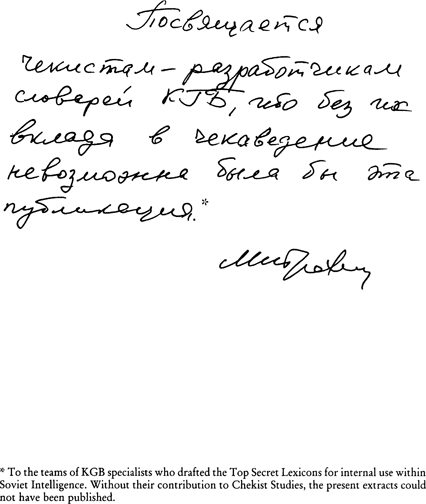 Посвящается
чекистам – разработчикам
словарей КГБ, ибо без их
вклада в чекаведение
невозможна была бы эта
публикация.*
Митрохин
* To the teams of KGB specialists who drafted the Top Secret Lexicons for internal use within
Soviet Intelligence. Without their contribution to Chekist Studies, the present extracts could
not have been published.